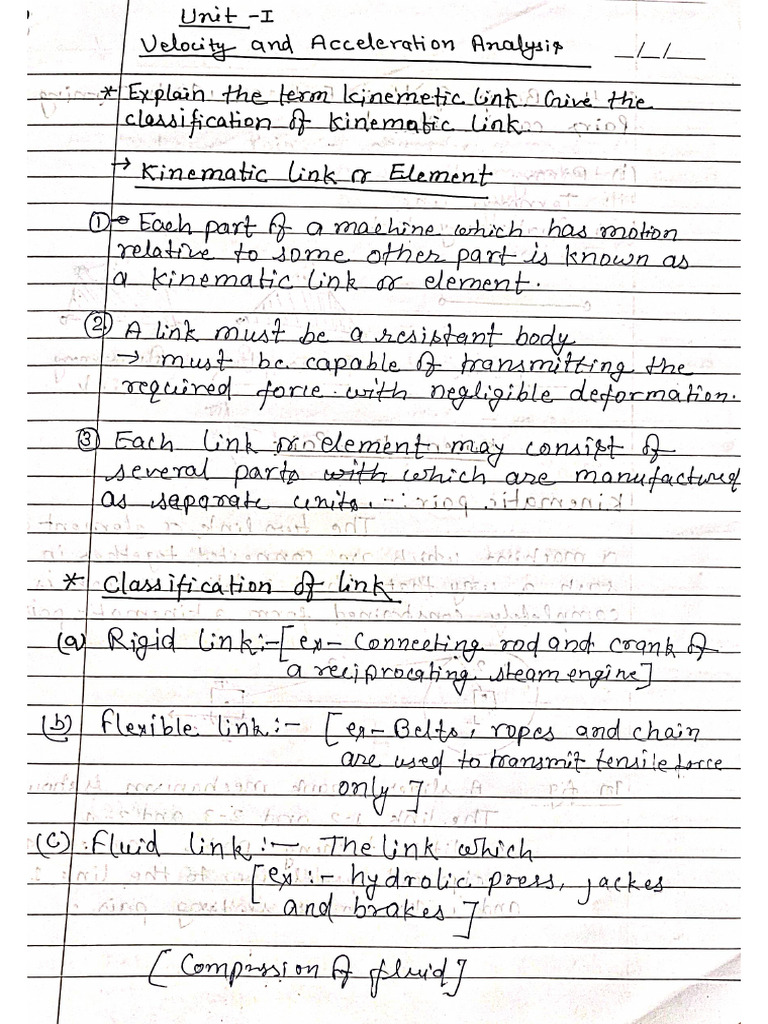 Unit - I
Velocity and Acceleration Analysis _/_/_
* Explain the term kinemetic link. Give the
classification of kinematic link.
→ Kinematic link or Element
① Each part of a machine which has motion
relative to some other part is known as
a kinematic link or element.
② A link must be a resistant body
→ must be capable of transmitting the
required force with negligible deformation.
③ Each link or element may consist of
several parts with which are manufactured
as separate units.
* Classification of link
(a) Rigid link:- [ex- Connecting rod and crank of
a reciprocating steam engine]
(b) flexible link:- [ex- Belts, ropes and chain
are used to transmit tensile force
only]
(C) fluid link:- The link which
[ex:- hydrolic press, jackes
and brakes]
[Compression of fluid]